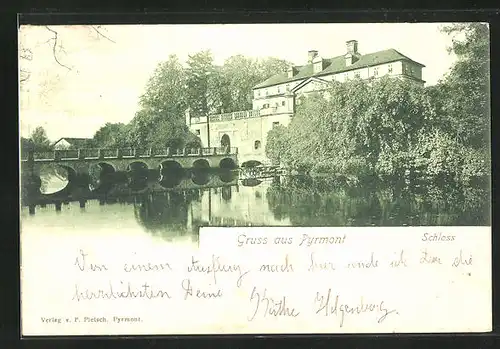 Gruss aus Pyrmont
Schloss
Von einem Ausflug nach hier sende ich Dir die
herrlichsten Grüsse
Käthe Hilgenberg.
Verlag v. F. Pietsch, Pyrmont.